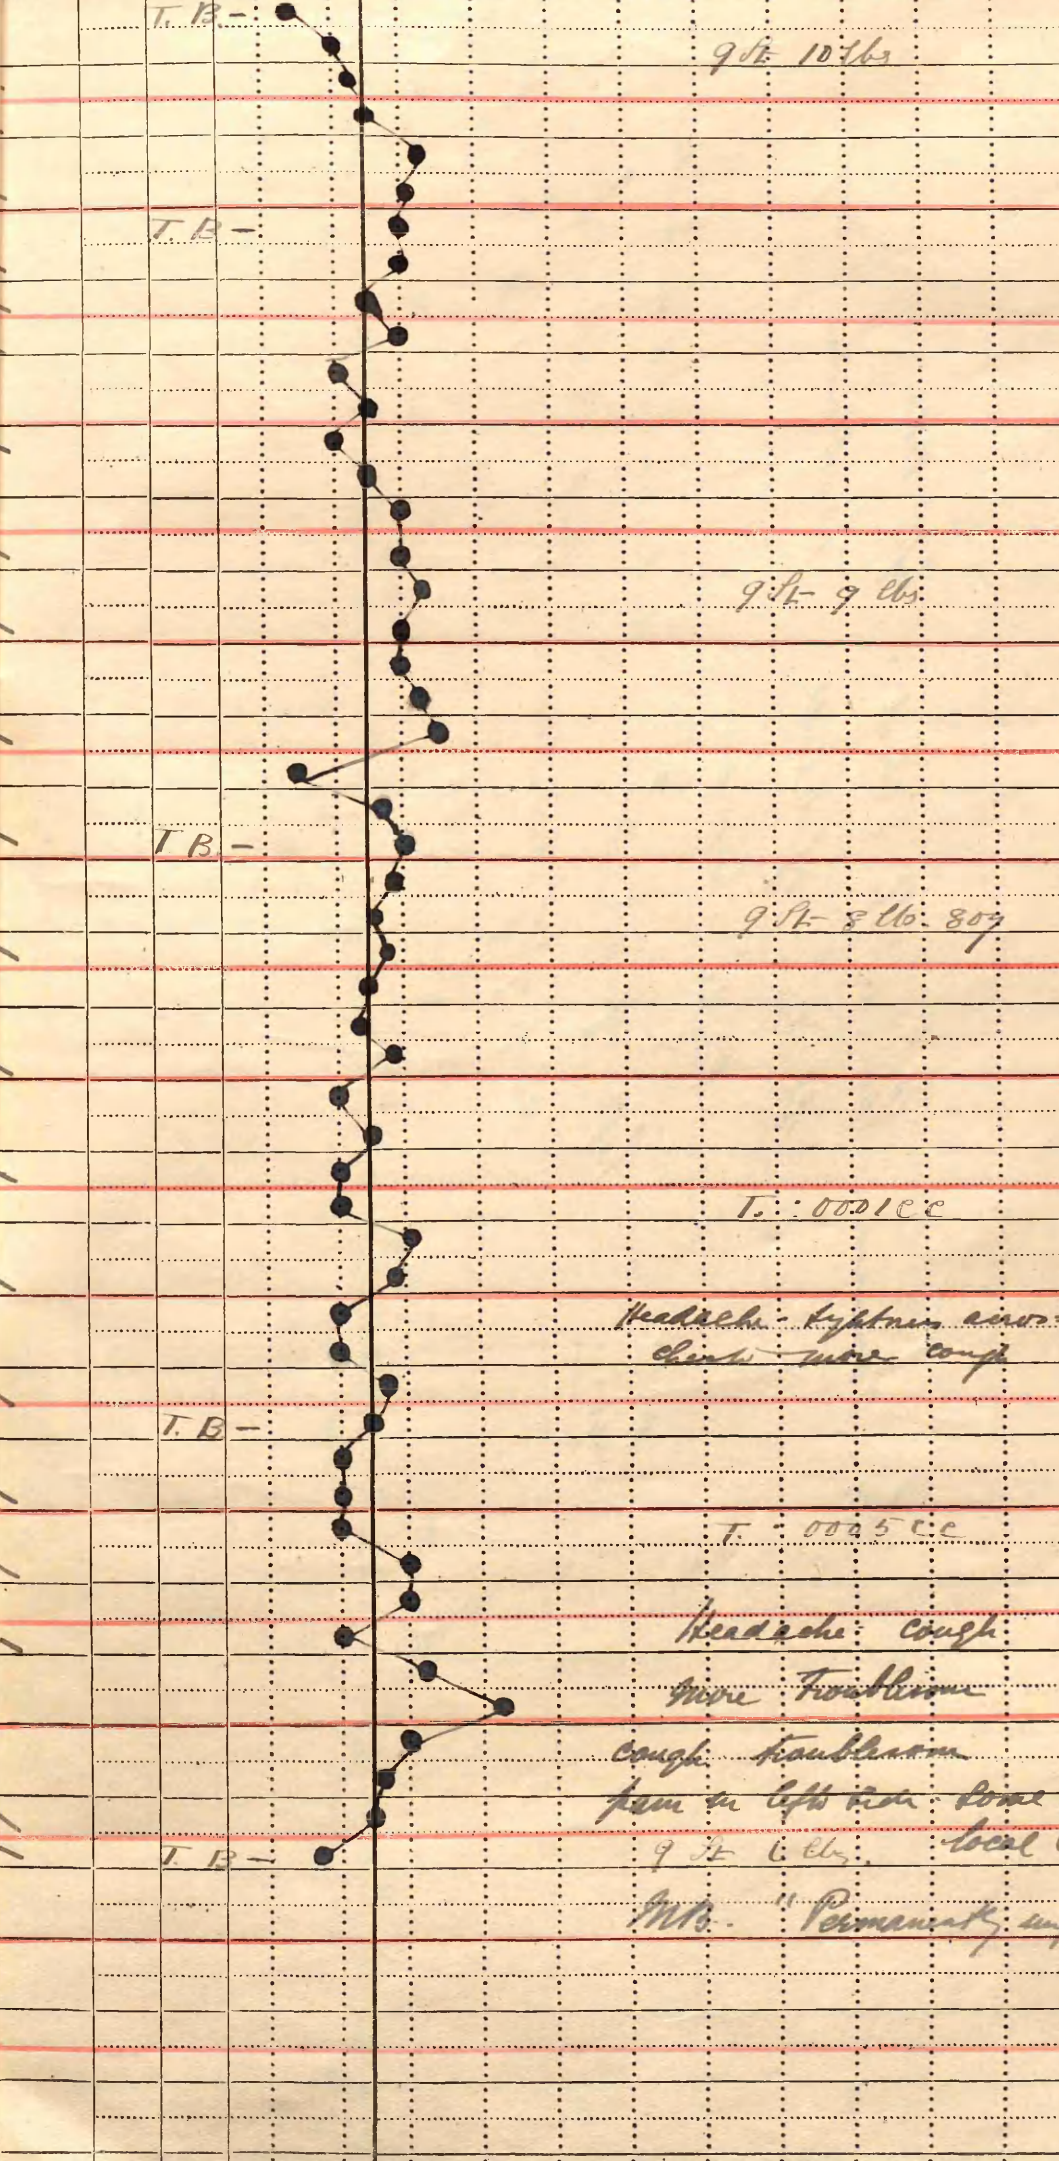 T. B. -
9 St 10 lbs
T. B -
9 St 9 lbs
T B. -
9 St 8 lb. 80z
T. .0001 c c
Headache - tightness across
chest - more cough
T. B -
T. .0005 c c
Headache cough
more troublesome
cough troublesome
pain in left side. Some
T. B - 9 St lbs. local
MB. "Permanently